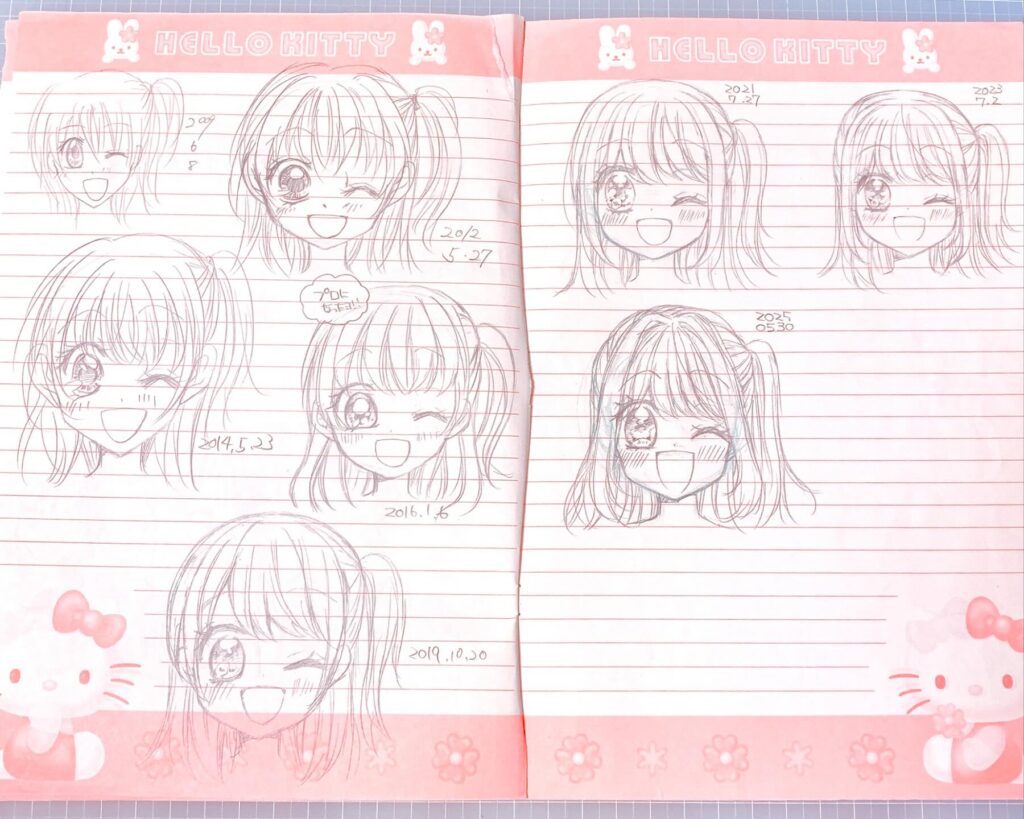 HELLO KITTY
2009
6
8
2012
5.27
プロに
なったよ!!
2014.5.23
2016.1.6
2019.10.20
HELLO KITTY
2021
7.27
2023
7.2
2025
0530